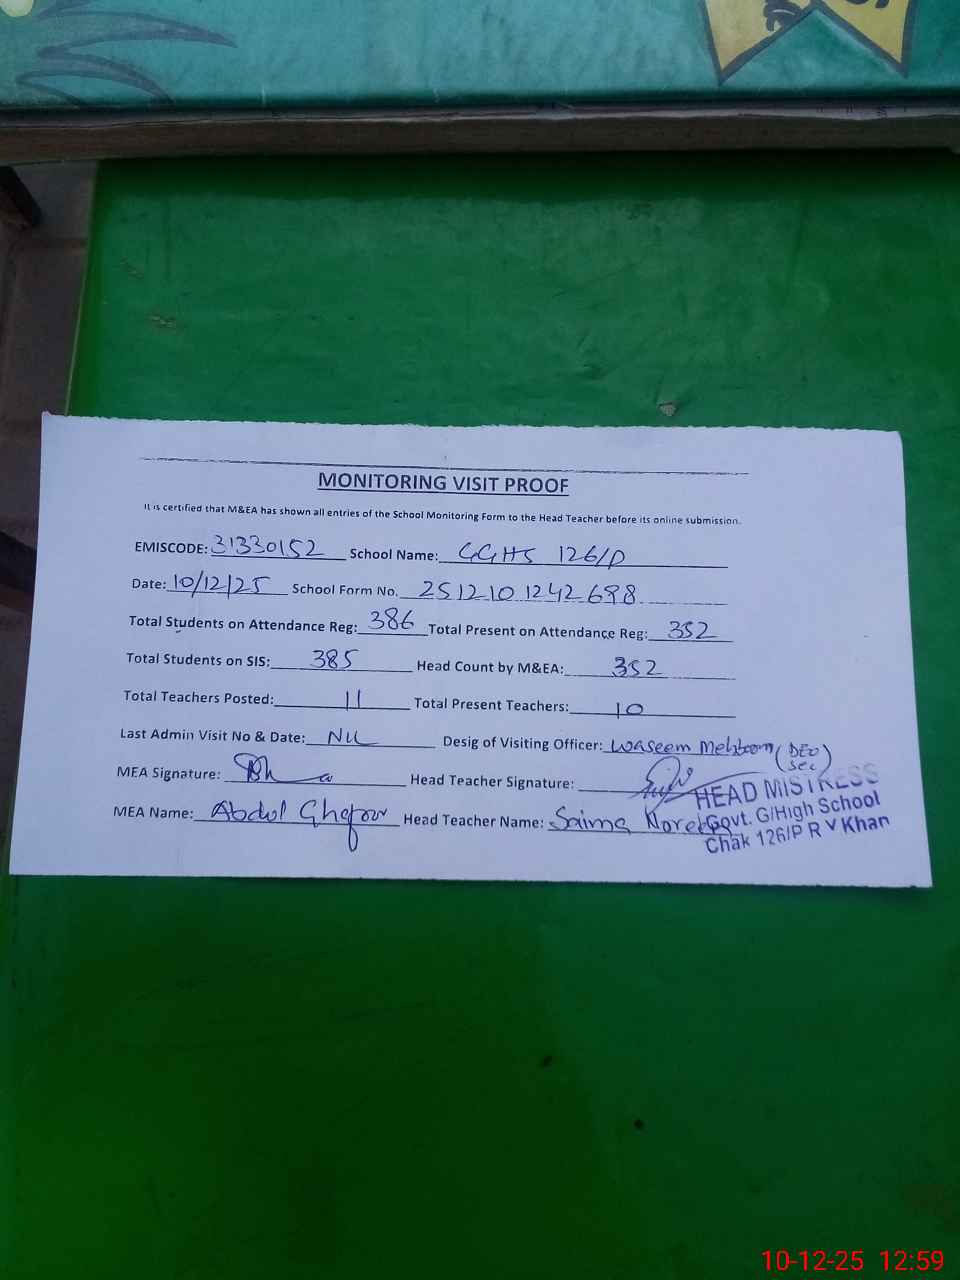 MONITORING VISIT PROOF
It is certified that M&EA has shown all entries of the School Monitoring Form to the Head Teacher before its online submission.
EMISCODE: 31330152 School Name: GGHS 126/P
Date: 10/12/25 School Form No. 2512101242698
Total Students on Attendance Reg: 386 Total Present on Attendance Reg: 352
Total Students on SIS: 385 Head Count by M&EA: 352
Total Teachers Posted: 11 Total Present Teachers: 10
Last Admin Visit No & Date: NIL Desig of Visiting Officer: Waseem Mehboom (DEO Sec)
MEA Signature: Head Teacher Signature:
MEA Name: Abdul Ghafoor Head Teacher Name: Saima
HEAD MISTRESS
Govt. G/High School
Chak 126/P R Y Khan
10-12-25 12:59